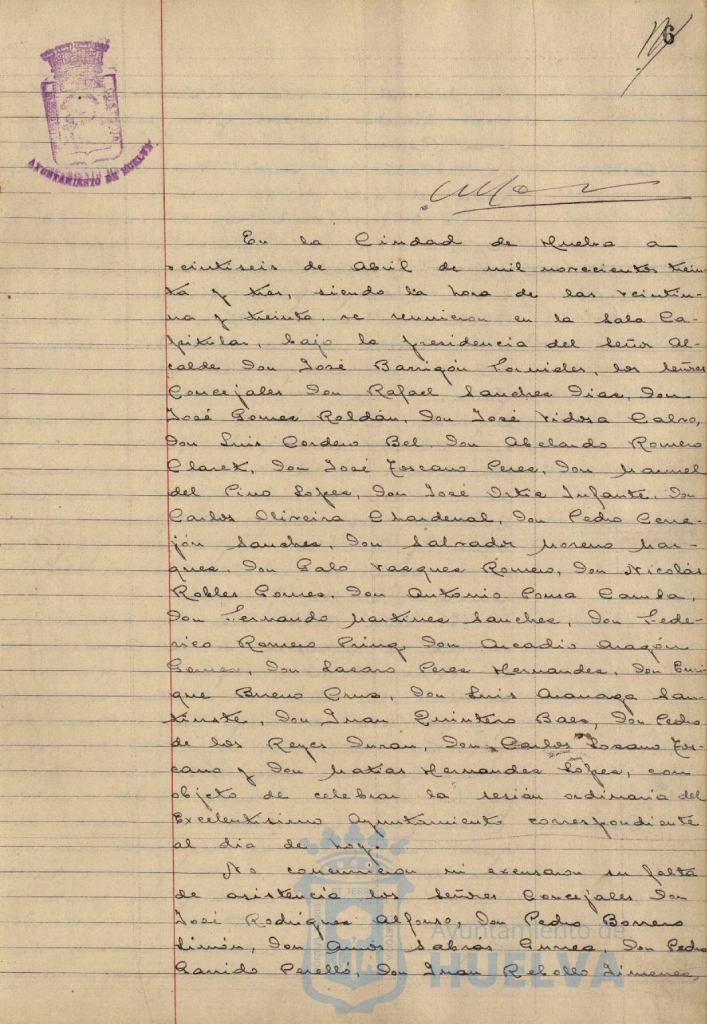 6
AYUNTAMIENTO DE HUELVA
En la Ciudad de Huelva a
veintiseis de Abril de mil novecientos trein-
ta y tres, siendo la hora de las veintiu-
na y treinta, se reunieron en la Sala Ca-
pitular, bajo la presidencia del Señor Al-
calde Don José Barrigón Fornieles, los señores
Concejales Don Rafael Sanchez Diaz, Don
José Gomez Roldán, Don José Vidosa Calvo,
Don Luis Cordero Bel, Don Abelardo Romero
Claret, Don José Toscano Perez, Don Manuel
del Pino Lopez, Don José Ortiz Infante, Don
Carlos Oliveira Chardenal, Don Pedro Cere-
jón Sanchez, Don Salvador Moreno Mar-
quez, Don Galo Vazquez Romero, Don Nicolás
Robles Gomez, Don Antonio Ponsa Camba,
Don Fernando Martinez Sanchez, Don Fede-
rico Romero Pring, Don Arcadio Aragón
Gomez, Don Lazaro Perez Hernandez, Don Enri-
que Bueno Cruz, Don Luis Aranaga San-
tiuste, Don Juan Quintero Baez, Don Pedro
de los Reyes Duran, Don Carlos Lozano Tos-
cano y Don Matias Hernandez Lopez, con
objeto de celebrar la sesión ordinaria del
Excelentisimo Ayuntamiento correspondiente
al dia de hoy.
No concurrieron ni excusaron su falta
de asistencia los señores Concejales Don
José Rodriguez Alfonso, Don Pedro Borrero
Limón, Don Amós Sabrás Gurrea, Don Pedro
Garrido Perelló, Don Juan Rebollo Jimenez,
Ayuntamiento de
HUELVA